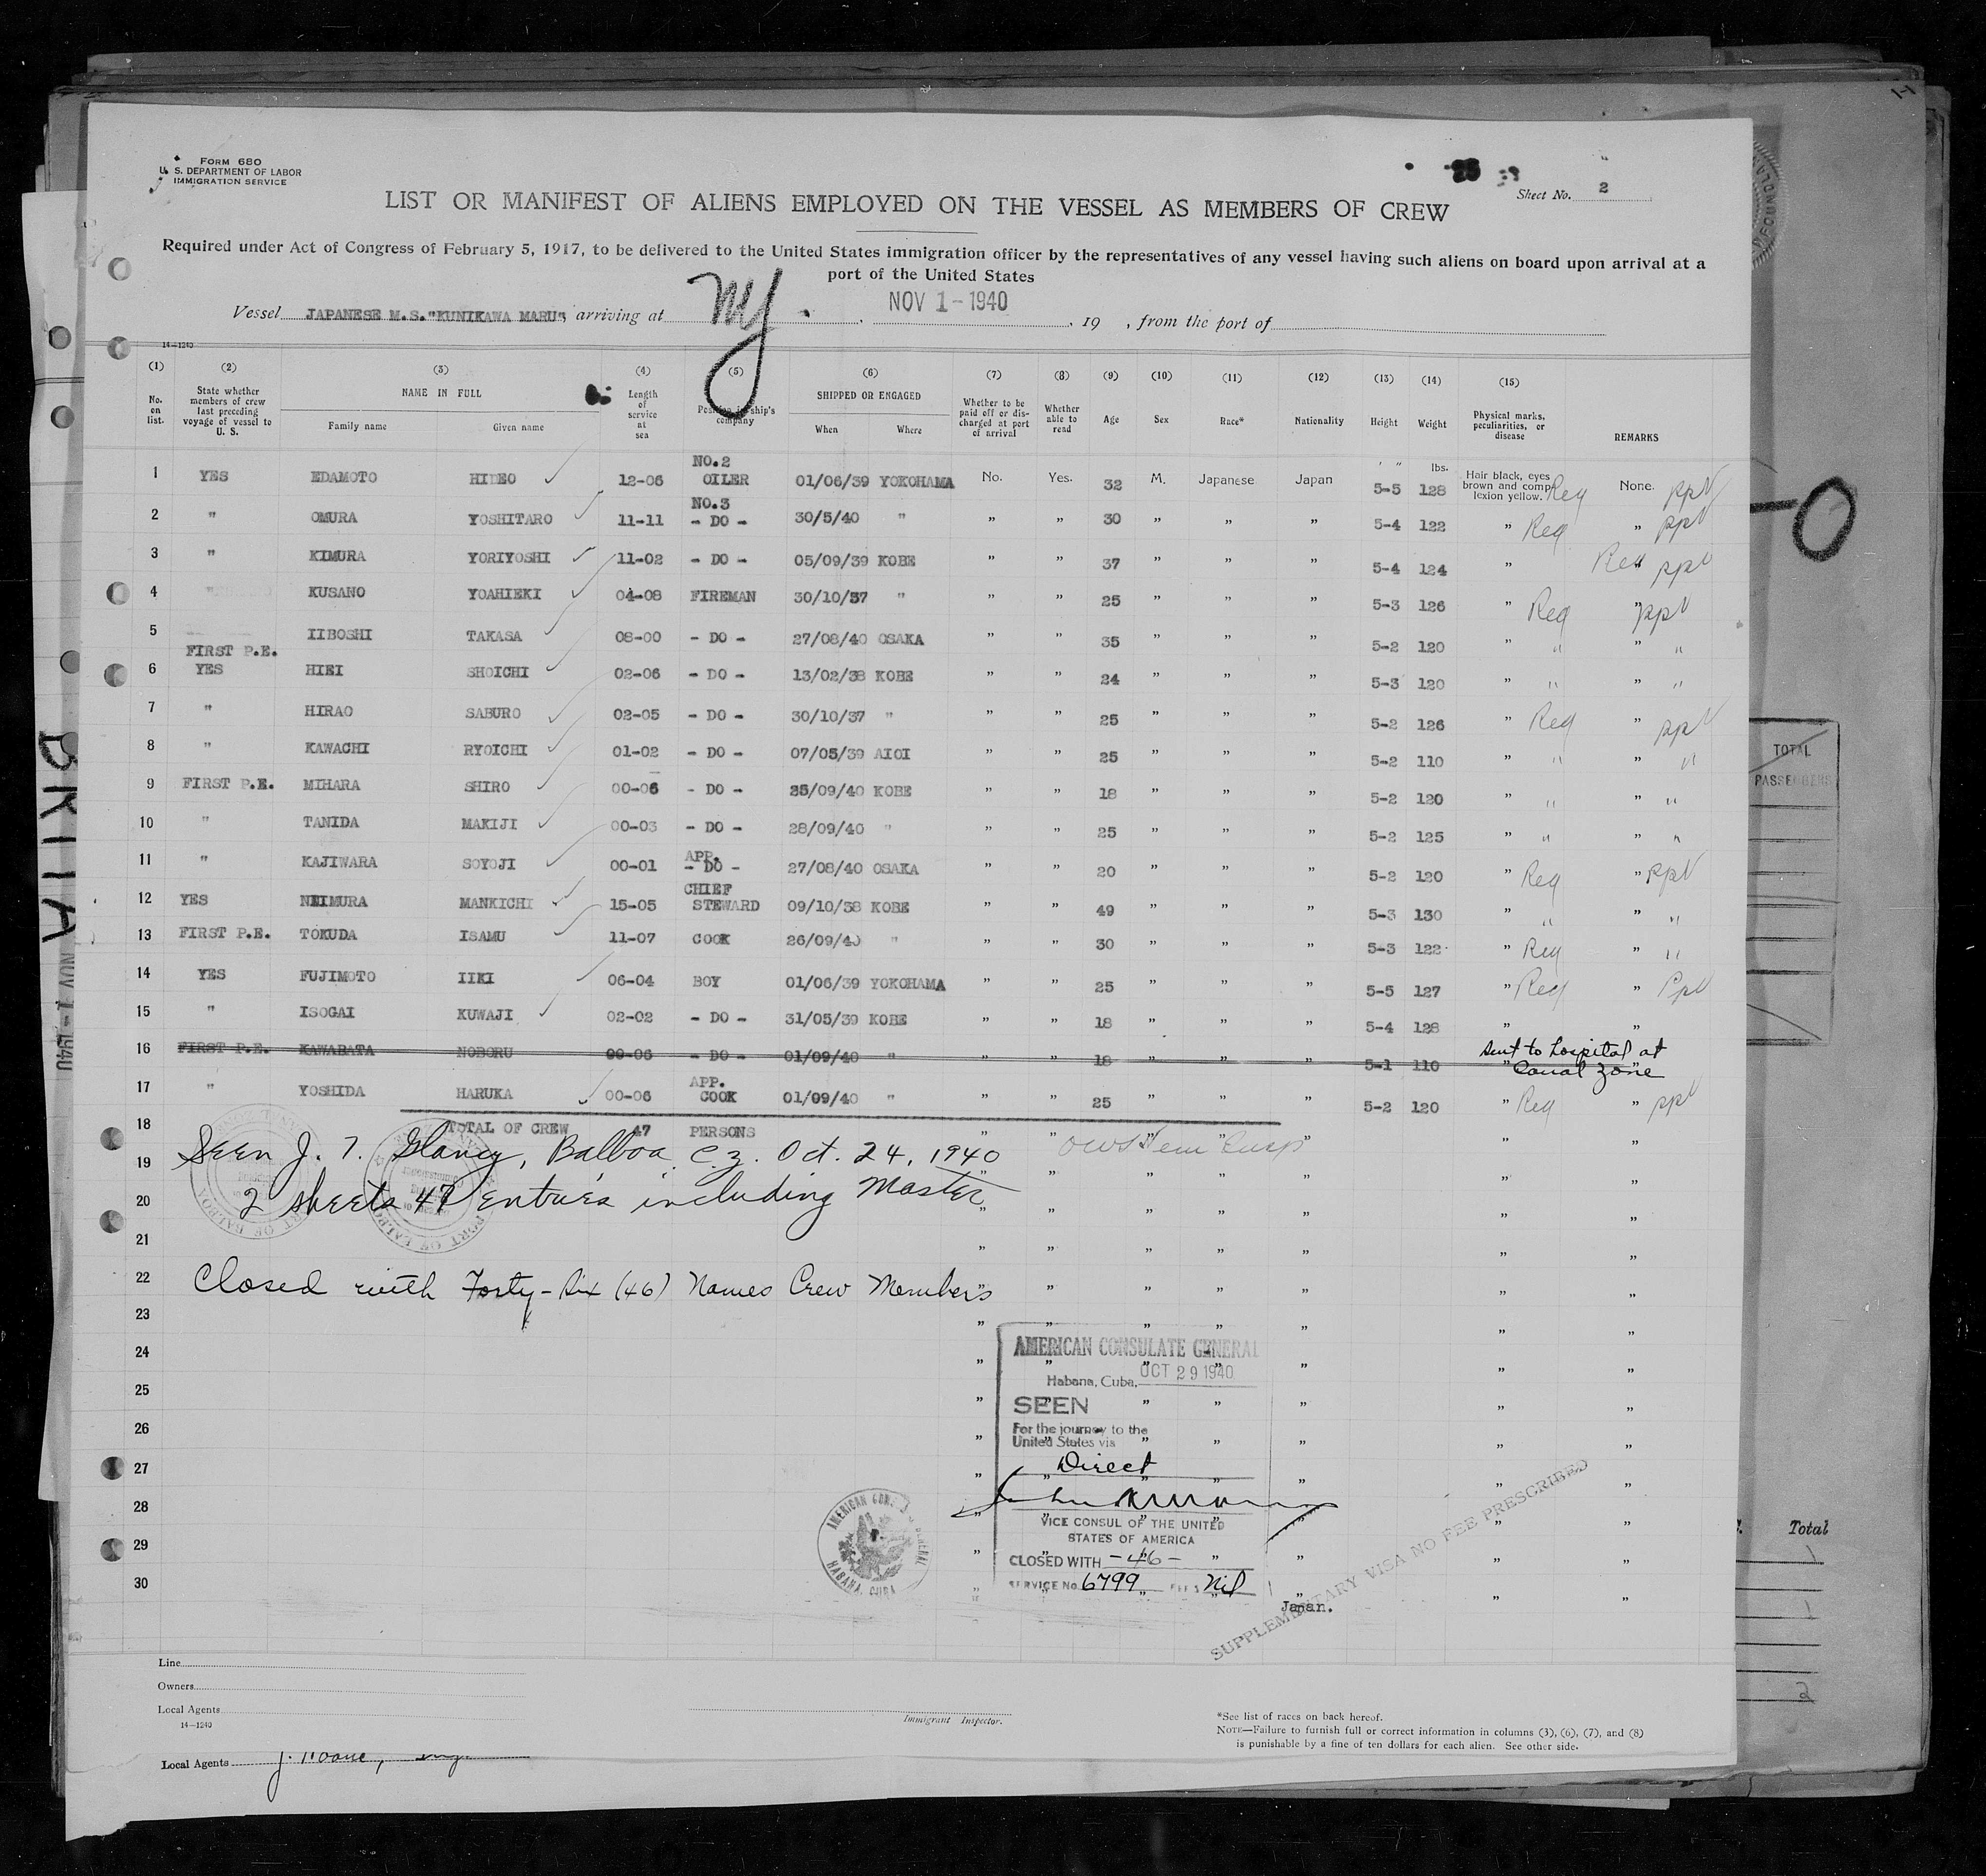 FORM 680
U. S. DEPARTMENT OF LABOR
IMMIGRATION SERVICE
Sheet No. 2
LIST OR MANIFEST OF ALIENS EMPLOYED ON THE VESSEL AS MEMBERS OF CREW
Required under Act of Congress of February 5, 1917, to be delivered to the United States immigration officer by the representatives of any vessel having such aliens on board upon arrival at a
port of the United States
Vessel JAPANESE M.S."KUNIKAWA MARU", arriving at NY. , NOV 1 - 1940 , 19 , from the port of
14—1240
(1) (2) (3) (4) (5) (6) (7) (8) (9) (10) (11) (12) (13) (14) (15)
No. on list. State whether members of crew last preceding voyage of vessel to U. S. NAME IN FULL Family name Given name Length of service at sea Position in ship's company SHIPPED OR ENGAGED When Where Whether to be paid off or discharged at port of arrival Whether able to read Age Sex Race* Nationality Height Weight Physical marks, peculiarities, or disease REMARKS
1 YES EDAMOTO HIDEO 12-06 NO.2 OILER 01/06/39 YOKOHAMA No. Yes. 32 M. Japanese Japan 5-5 lbs. 128 Hair black, eyes brown and complexion yellow. Reg None. ppt
2 " OMURA YOSHITARO 11-11 NO.3 - DO - 30/5/40 " " " 30 " " " 5-4 122 " Reg " ppt
3 " KIMURA YORIYOSHI 11-02 - DO - 05/09/39 KOBE " " 37 " " " 5-4 124 " Reg " ppt
4 " KUSANO YOAHIEKI 04-08 FIREMAN 30/10/37 " " " 25 " " " 5-3 126 " Reg " ppt
5 FIRST P.E. IIBOSHI TAKASA 08-00 - DO - 27/08/40 OSAKA " " 35 " " " 5-2 120 " " " "
6 YES HIEI SHOICHI 02-06 - DO - 13/02/38 KOBE " " 24 " " " 5-3 120 " " " "
7 " HIRAO SABURO 02-05 - DO - 30/10/37 " " " 25 " " " 5-2 126 " Reg " ppt
8 " KAWACHI RYOICHI 01-02 - DO - 07/05/39 AIOI " " 25 " " " 5-2 110 " " " "
9 FIRST P.E. MIHARA SHIRO 00-06 - DO - 25/09/40 KOBE " " 18 " " " 5-2 120 " " " "
10 " TANIDA MAKIJI 00-03 - DO - 28/09/40 " " " 25 " " " 5-2 125 " " " "
11 " KAJIWARA SOYOJI 00-01 APP. - DO - 27/08/40 OSAKA " " 20 " " " 5-2 120 " Reg " ppt
12 YES NEIMURA MANKICHI 15-05 CHIEF STEWARD 09/10/38 KOBE " " 49 " " " 5-3 130 " " " "
13 FIRST P.E. TOKUDA ISAMU 11-07 COOK 26/09/40 " " " 30 " " " 5-3 122 " Reg " "
14 YES FUJIMOTO IIKI 06-04 BOY 01/06/39 YOKOHAMA " " 25 " " " 5-5 127 " Reg " ppt
15 " ISOGAI KUWAJI 02-02 - DO - 31/05/39 KOBE " " 18 " " " 5-4 128 " "
16 FIRST P.E. KAWABATA NOBORU 00-06 - DO - 01/09/40 " " " 18 " " " 5-1 110 " sent to hospital at Canal Zone "
17 " YOSHIDA HARUKA 00-06 APP. COOK 01/09/40 " " " 25 " " " 5-2 120 " Reg " ppt
18 TOTAL OF CREW 47 PERSONS
19 Seen J. T. Glancy, Balboa C.Z. Oct. 24, 1940
20 2 sheets 47 entries including Master
21
22 Closed with Forty-six (46) Names Crew Members
23
24
25
26
27
28
29
30
PORT OF BALBOA
AMERICAN CONSULATE GENERAL
Habana, Cuba, OCT 29 1940
SEEN
For the journey to the
United States via
Direct
VICE CONSUL OF THE UNITED
STATES OF AMERICA
CLOSED WITH -46-
SERVICE No. 6799 FEES Nil
Japan.
HABANA, CUBA
SUPPLEMENTARY VISA NO FEE PRESCRIBED
Line
Owners
Local Agents
14—1240
Immigrant Inspector.
*See list of races on back hereof.
NOTE—Failure to furnish full or correct information in columns (3), (6), (7), and (8)
is punishable by a fine of ten dollars for each alien. See other side.
Local Agents
BRITA
NOV 1 - 1940
TOTAL
PASSENGERS
Total
1
1
2